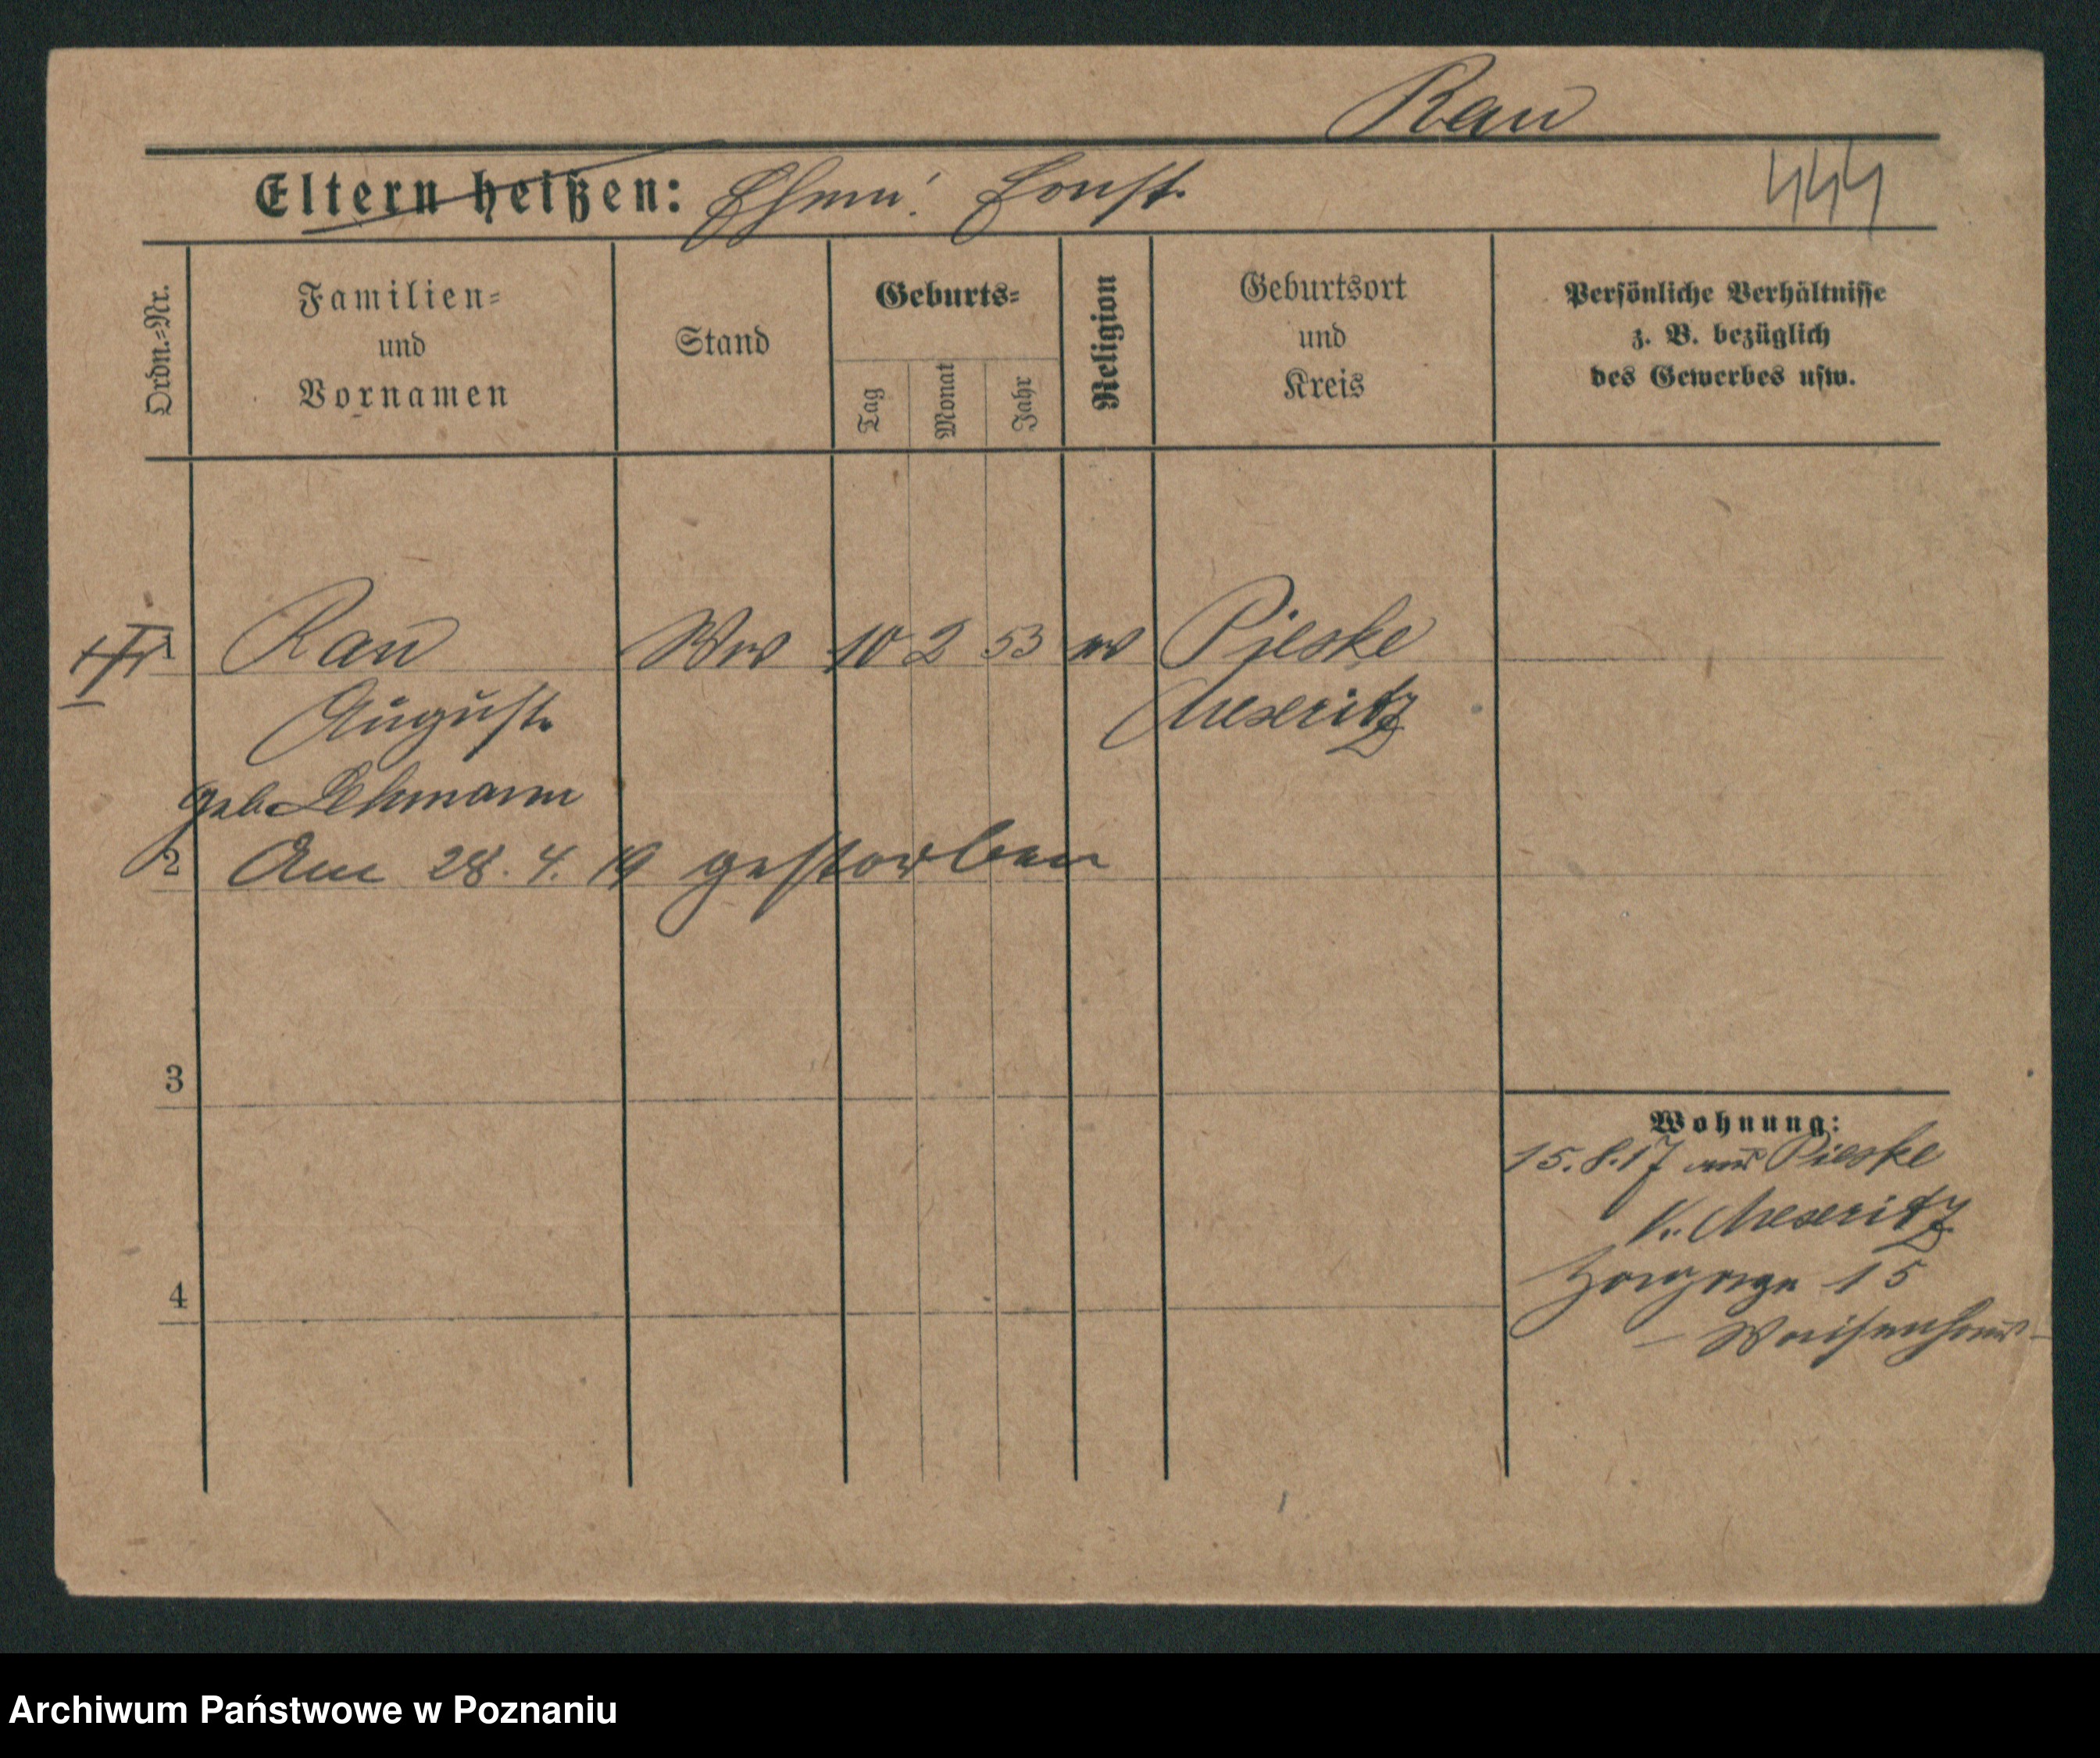 Rau
Eltern heißen: Ehem: Ernst
444
Ordn.=Nr.
Familien=
und
Vornamen
Stand
Geburts=
Tag
Monat
Jahr
Religion
Geburtsort
und
Kreis
Persönliche Verhältnisse
z. B. bezüglich
des Gewerbes usw.
1 Rau Ww 10 2 53 ev Pieske
August. Meseritz
geb. Lehmann
2 Am 28. 4. 19 gestorben
3
Wohnung:
15.8.17 aus Pieske
K. Meseritz
15
4
– Waisenhaus –
Archiwum Państwowe w Poznaniu